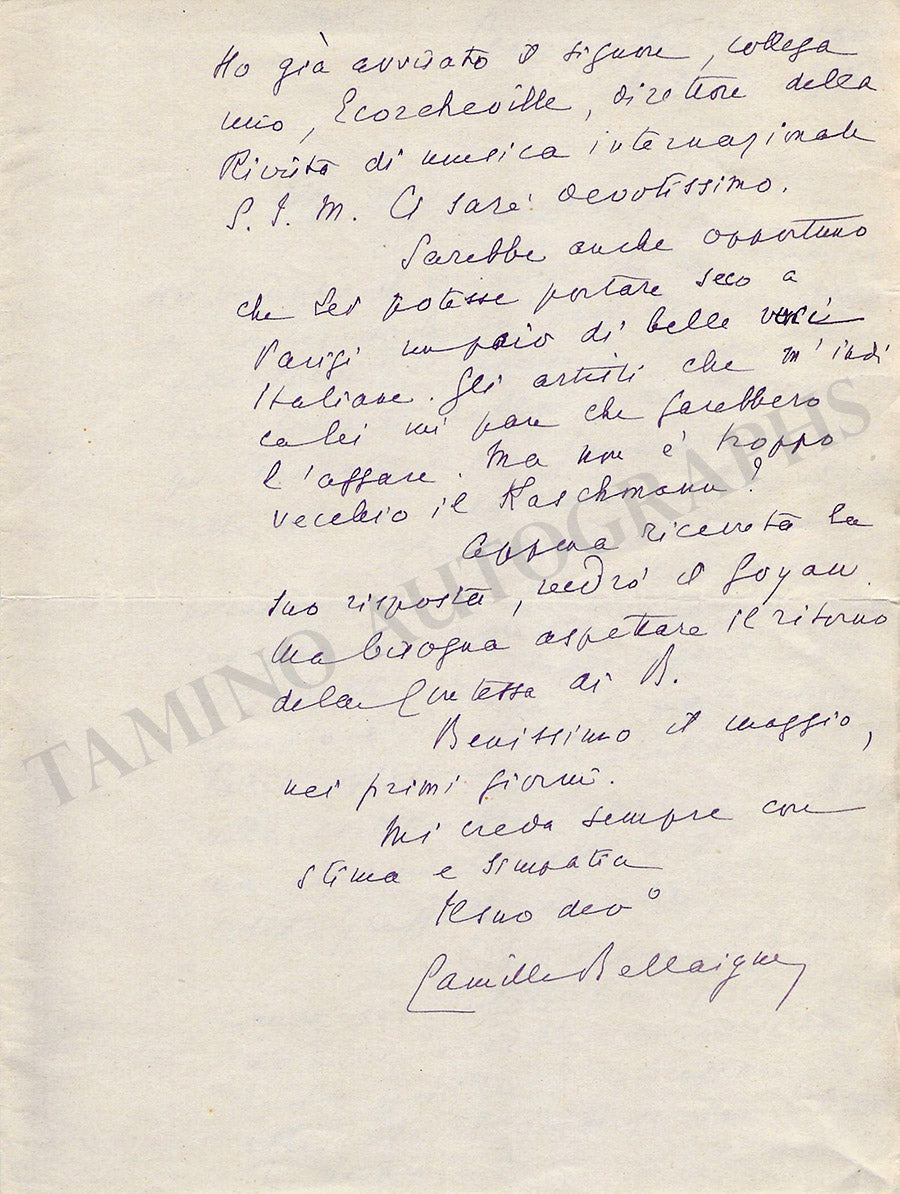 Ho già avvisato il signore, collega
mio, Ecorcheville, direttore della
Rivista di musica internazionale
S. I. M. Ci sarè devotissimo.
Sarebbe anche opportuno
che Lei potesse portare seco a
Parigi un paio di belle voci
Italiane. Gli artisti che m'indi
ca lei mi pare che farebbero
l'affare. Ma non è troppo
vecchio il Kaschmann?
Appena ricevuta la
sua risposta, vedrò il Goyau.
Ma bisogna aspettare il ritorno
della Contessa di B.
Benissimo il maggio,
nei primi giorni.
Mi creda sempre con
stima e simpatia
Il suo devº
Camille Bellaigue
TAMINO AUTOGRAPHS